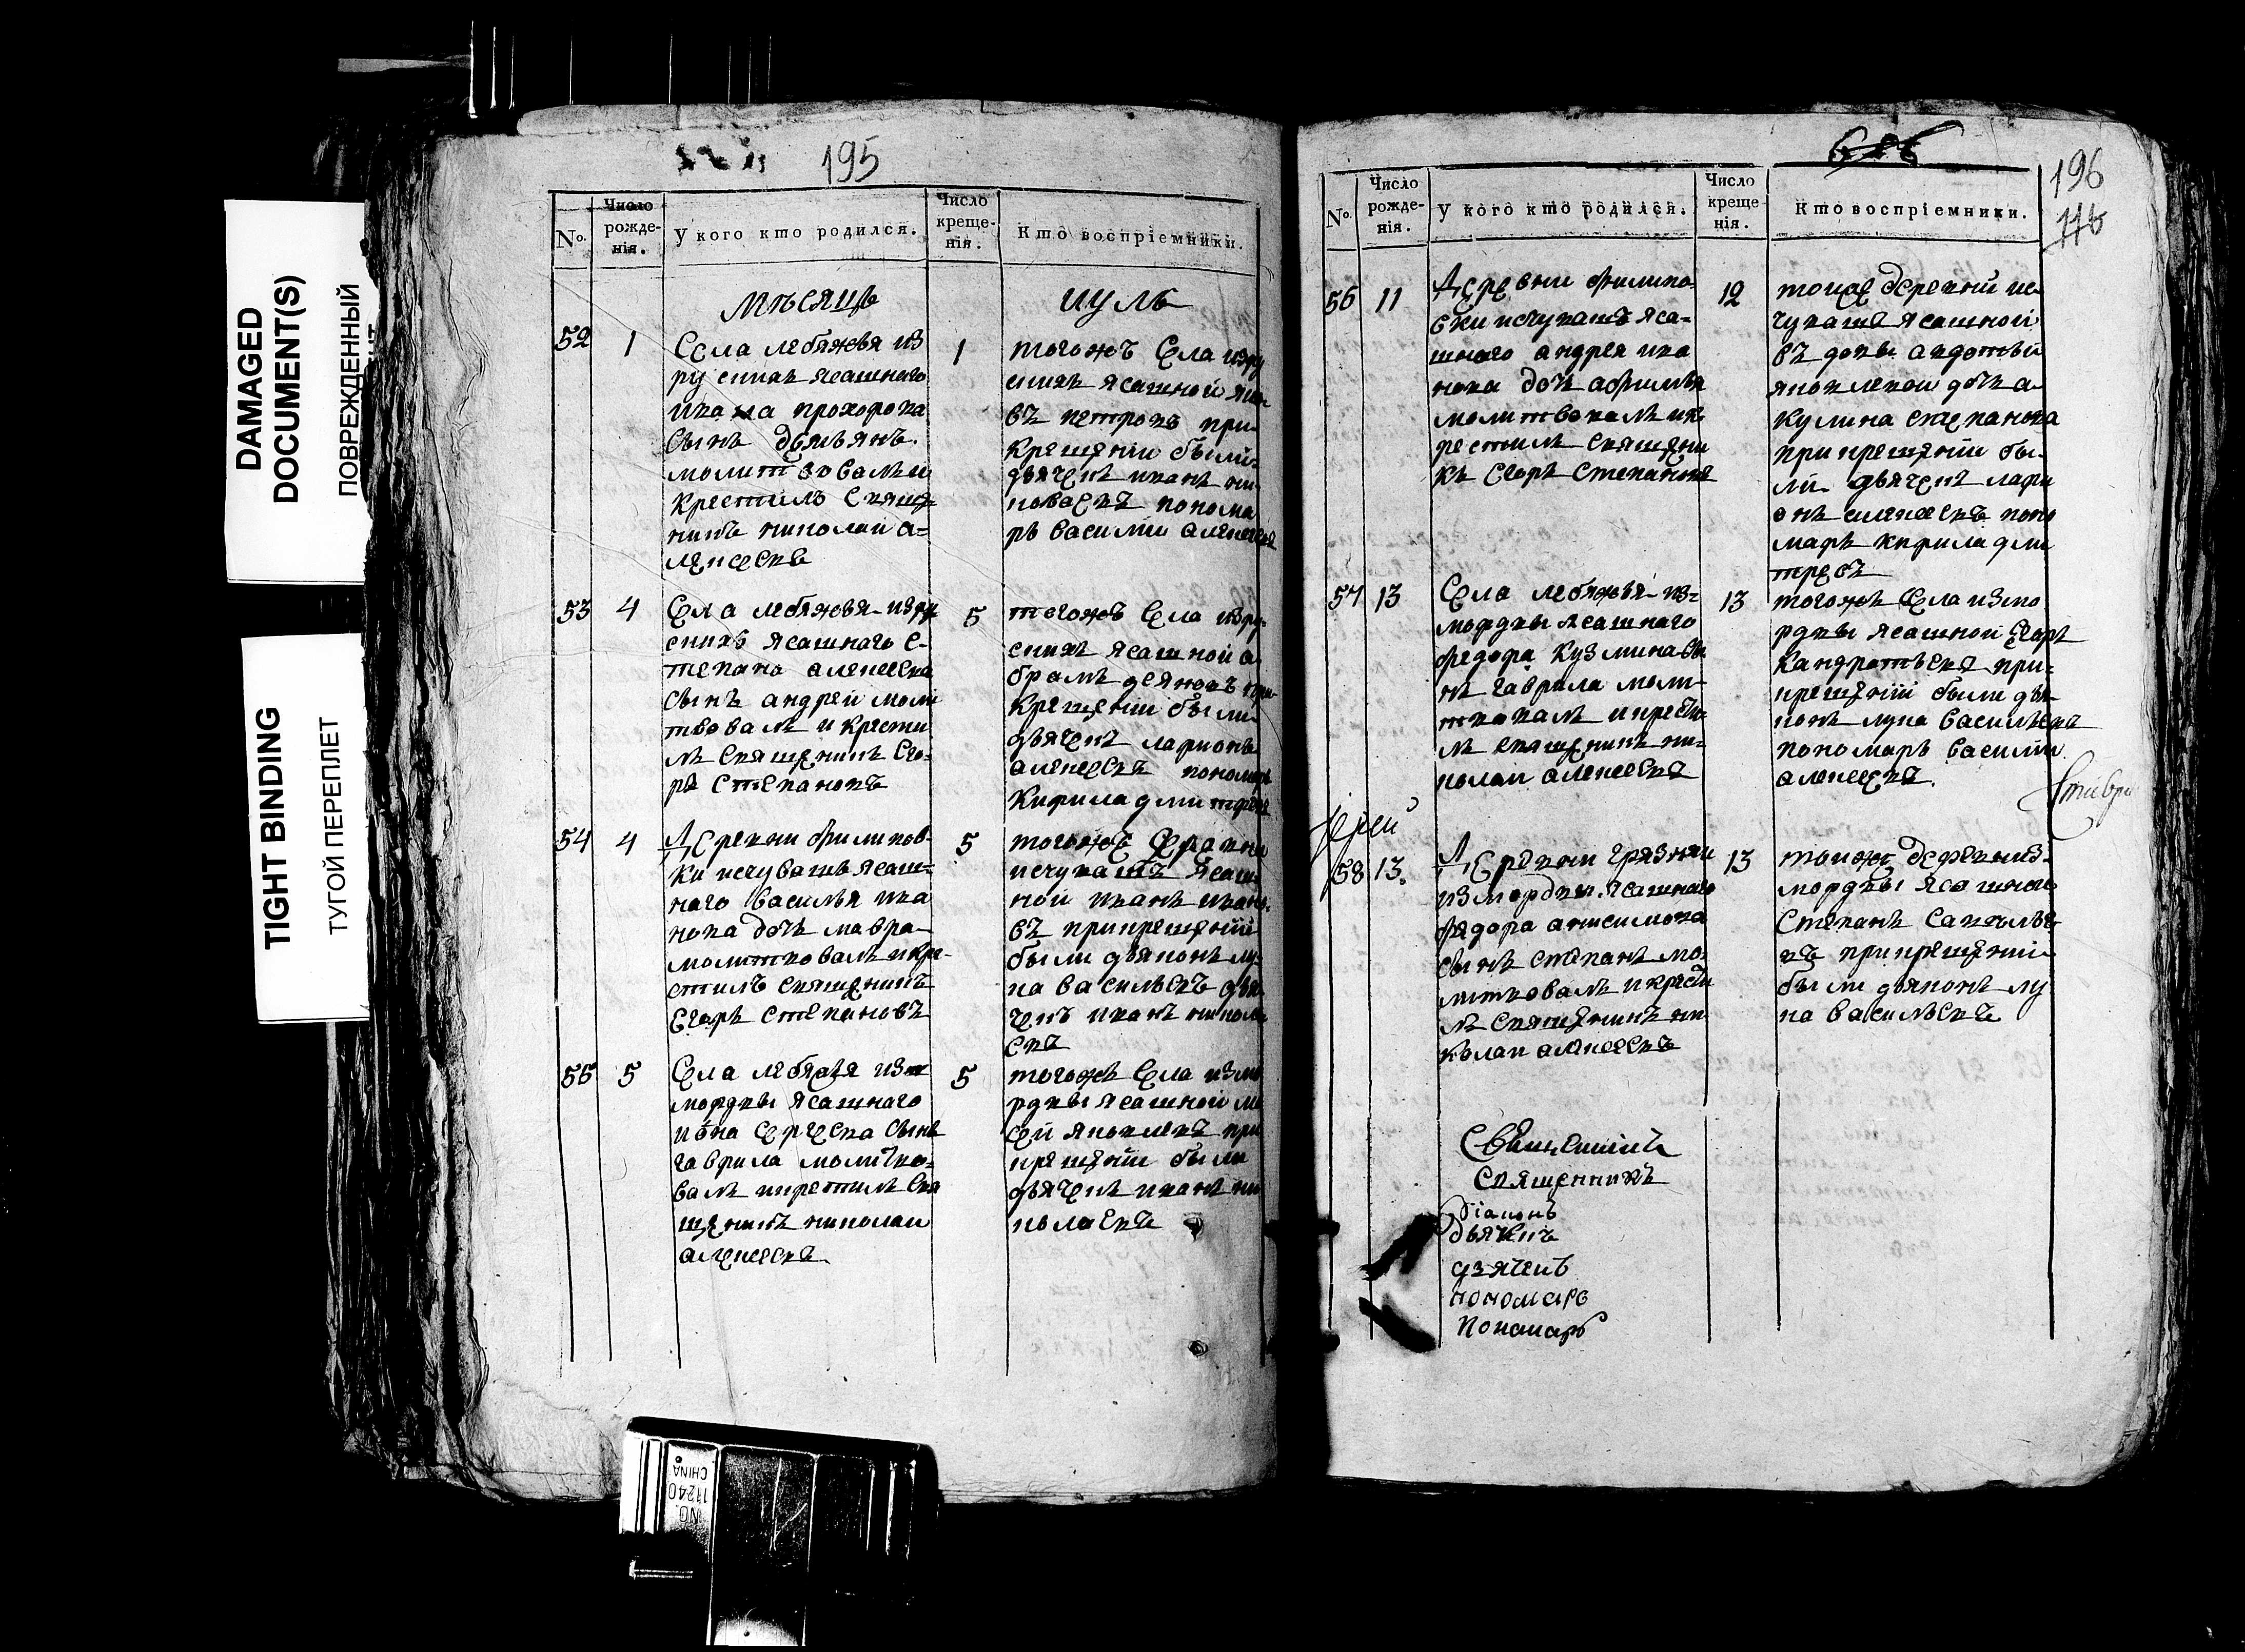 DAMAGED
DOCUMENT(S)
ПОВРЕЖДЕННЫЙ
TIGHT BINDING
ТУГОЙ ПЕРЕПЛЕТ
195
No.
Число рожденія.
У кого кто родился.
Число крещенія.
Кто воспріемники.
мѣсяцъ
иуль
52
1
Села лебяжья из
русикъ ясашнаго
ивана прохорова
сынъ демьянъ.
молитвовалъ и
крестилъ свяще
никъ николай а=
лексеевъ
1
тогожъ села изру
сикъ ясашной
въ петровъ при
крещении были
дьячекъ иванъ ни
колаевъ понома
рь василии алексеев
53
4
Села лебяжья из ру
сикъ ясашнаго с-
тепана алексеева
сынъ андреи моли
твовалъ и крести
лъ священикъ его=
ръ степановъ
5
тогожъ села изру
сикъ ясашной а
брамъ при
крещении были
дьячекъ ларионъ
алексеевъ пономарь
кирила дмитрев
54
4
Деревни филипов
ки исчувашъ ясаш=
наго василья ива
нова дочь мавра
молитвовалъ икре
стилъ священикъ
егоръ степановъ
5
тогожъ деревни
исчувашъ ясаш
ной иванъ ивано
въ прикрещении
были дьяконъ лу
ка васильевъ дья
чекъ иванъ никола
евъ
55
5
Села лебяжья из
мордвы ясашнаго
сергеева сынъ
гаврила молитво=
валъ икрестилъ свя
щеникъ николаи
алексеевъ
5
тогожъ села измо
рдвы ясашной мо
сей яковлевъ при
крещении были
дьячекъ иванъ ни
колаевъ
196
No.
Число рожденія.
У кого кто родился.
Число крещенія.
Кто воспріемники.
56
11
Деревни филипо
вки исчувашъ яса=
шнаго андрея ива
нова дочь афимья
молитвовалъ икъ
рестилъ священи
къ егоръ степановъ
12
тоиже деревни ис
чувашъ ясашной
въ довы авдотьи
яковлевои дочь а
кулина степанова
прикрещении бы-
ли дьячекъ лари
онъ алексеевъ поно
марь кирила дми
тревъ
57
13
Села лебяжья из=
мордвы ясашнаго
федора кузмина сы
нъ гаврила моли
твовалъ икрести
лъ священикъ ни=
колаи алексеевъ
13
тогожъ села измо
рдвы ясашной егоръ
кандратьевъ при=
крещении были дья
конъ лука васильевъ
пономарь василии
алексеевъ
Іерей
58
13
Деревни грязнухи
измордвы ясашнаго
федора анисимова
сынъ степанъ мо
литвовалъ икрести
лъ священикъ ни
колаи алексеевъ
13
тоижъ деревниз
мордвы ясашной
степанъ савелье
въ прикрещении
были дьяконъ лу
ка васильевъ
Священникъ
Священникъ
діаконъ
дьячекъ
дьячекъ
пономарь
Пономарь
NO. 11240
CHINA